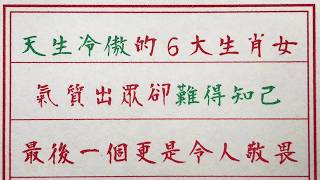 天生冷傲的6大生肖女
氣質出眾卻難得知己
最後一個更是令人敬畏